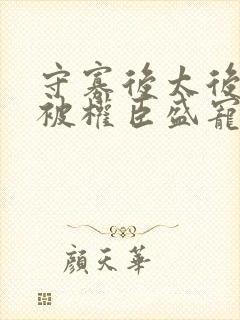 守寡後太後
被權臣盛寵
顔天華